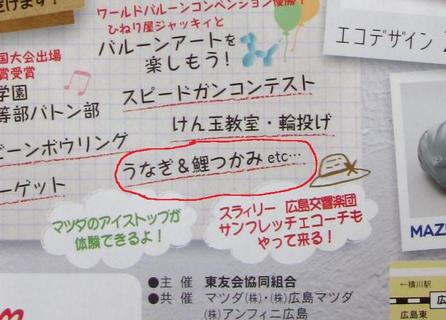 だけます!
ワールドバルーンコンベンション優勝!
ひねり屋ジャッキィと
バルーンアートを
楽しもう!
国大会出場
賞受賞
学園
等部バトン部
スピードガンコンテスト
けん玉教室・輪投げ
ビーンボウリング
うなぎ&鯉つかみ etc…
ーゲット
マツダのアイストップが
体験できるよ!
スラィリー 広島交響楽団
サンフレッチェコーチも
やって来る!
エコデザイン
MAZ
●主 催 東友会協同組合
●共 催 マツダ(株)・(株)広島マツダ
(株)アンフィニ広島
←横川駅
広島東